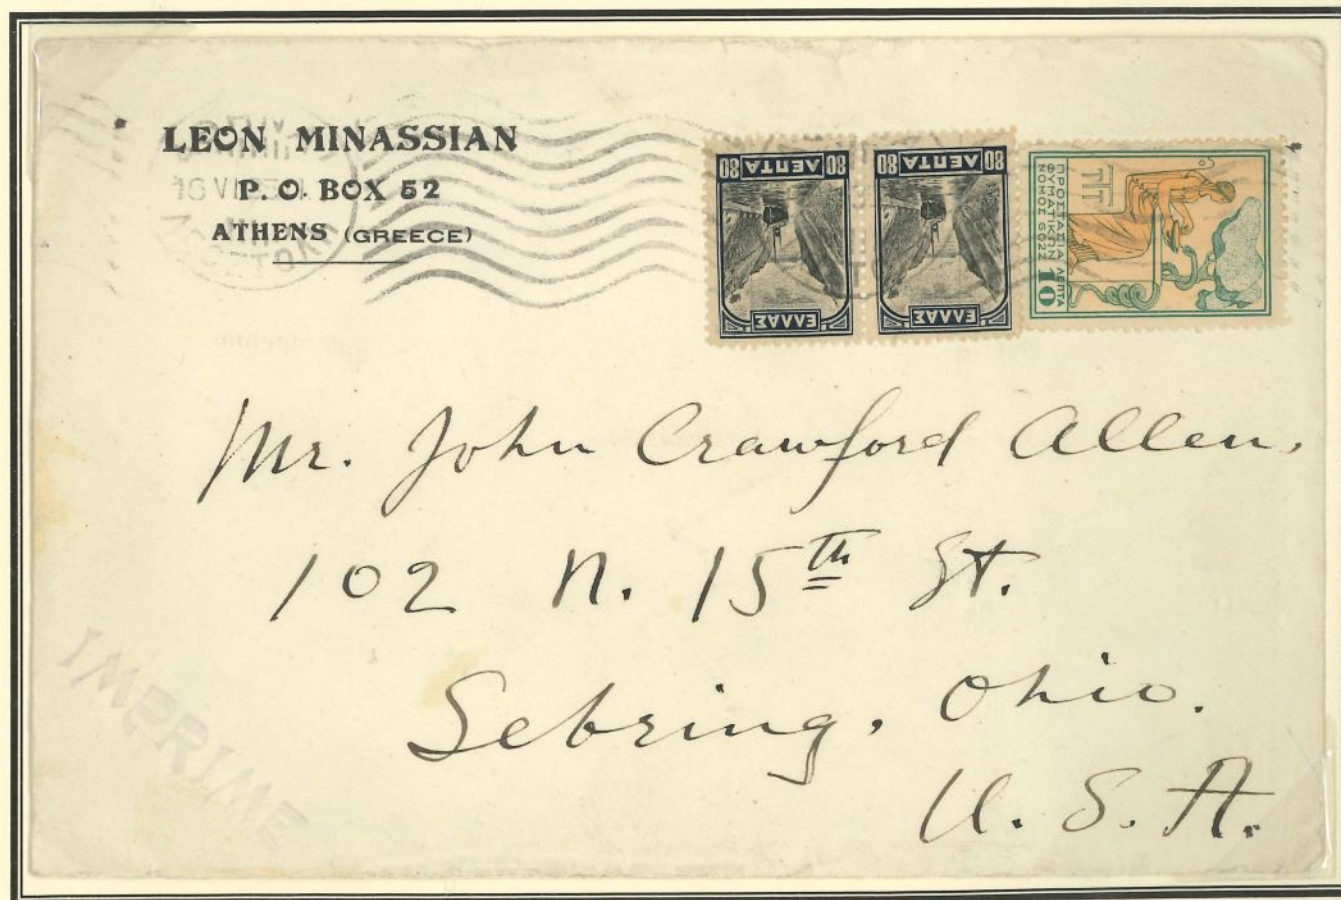 LEON MINASSIAN
P. O. BOX 52
ATHENS (GREECE)
80 ΛΕΠΤΑ 80
ΕΛΛΑΣ
80 ΛΕΠΤΑ 80
ΕΛΛΑΣ
ΠΡΟΣΤΑΣΙΑ ΛΕΠΤΑ
ΦΥΜΑΤΙΚΩΝ 10
ΝΟΜΟΣ 6022
Mr. John Crawford Allen,
102 N. 15th St.
Sebring, Ohio.
U. S. A.
IMPRIME